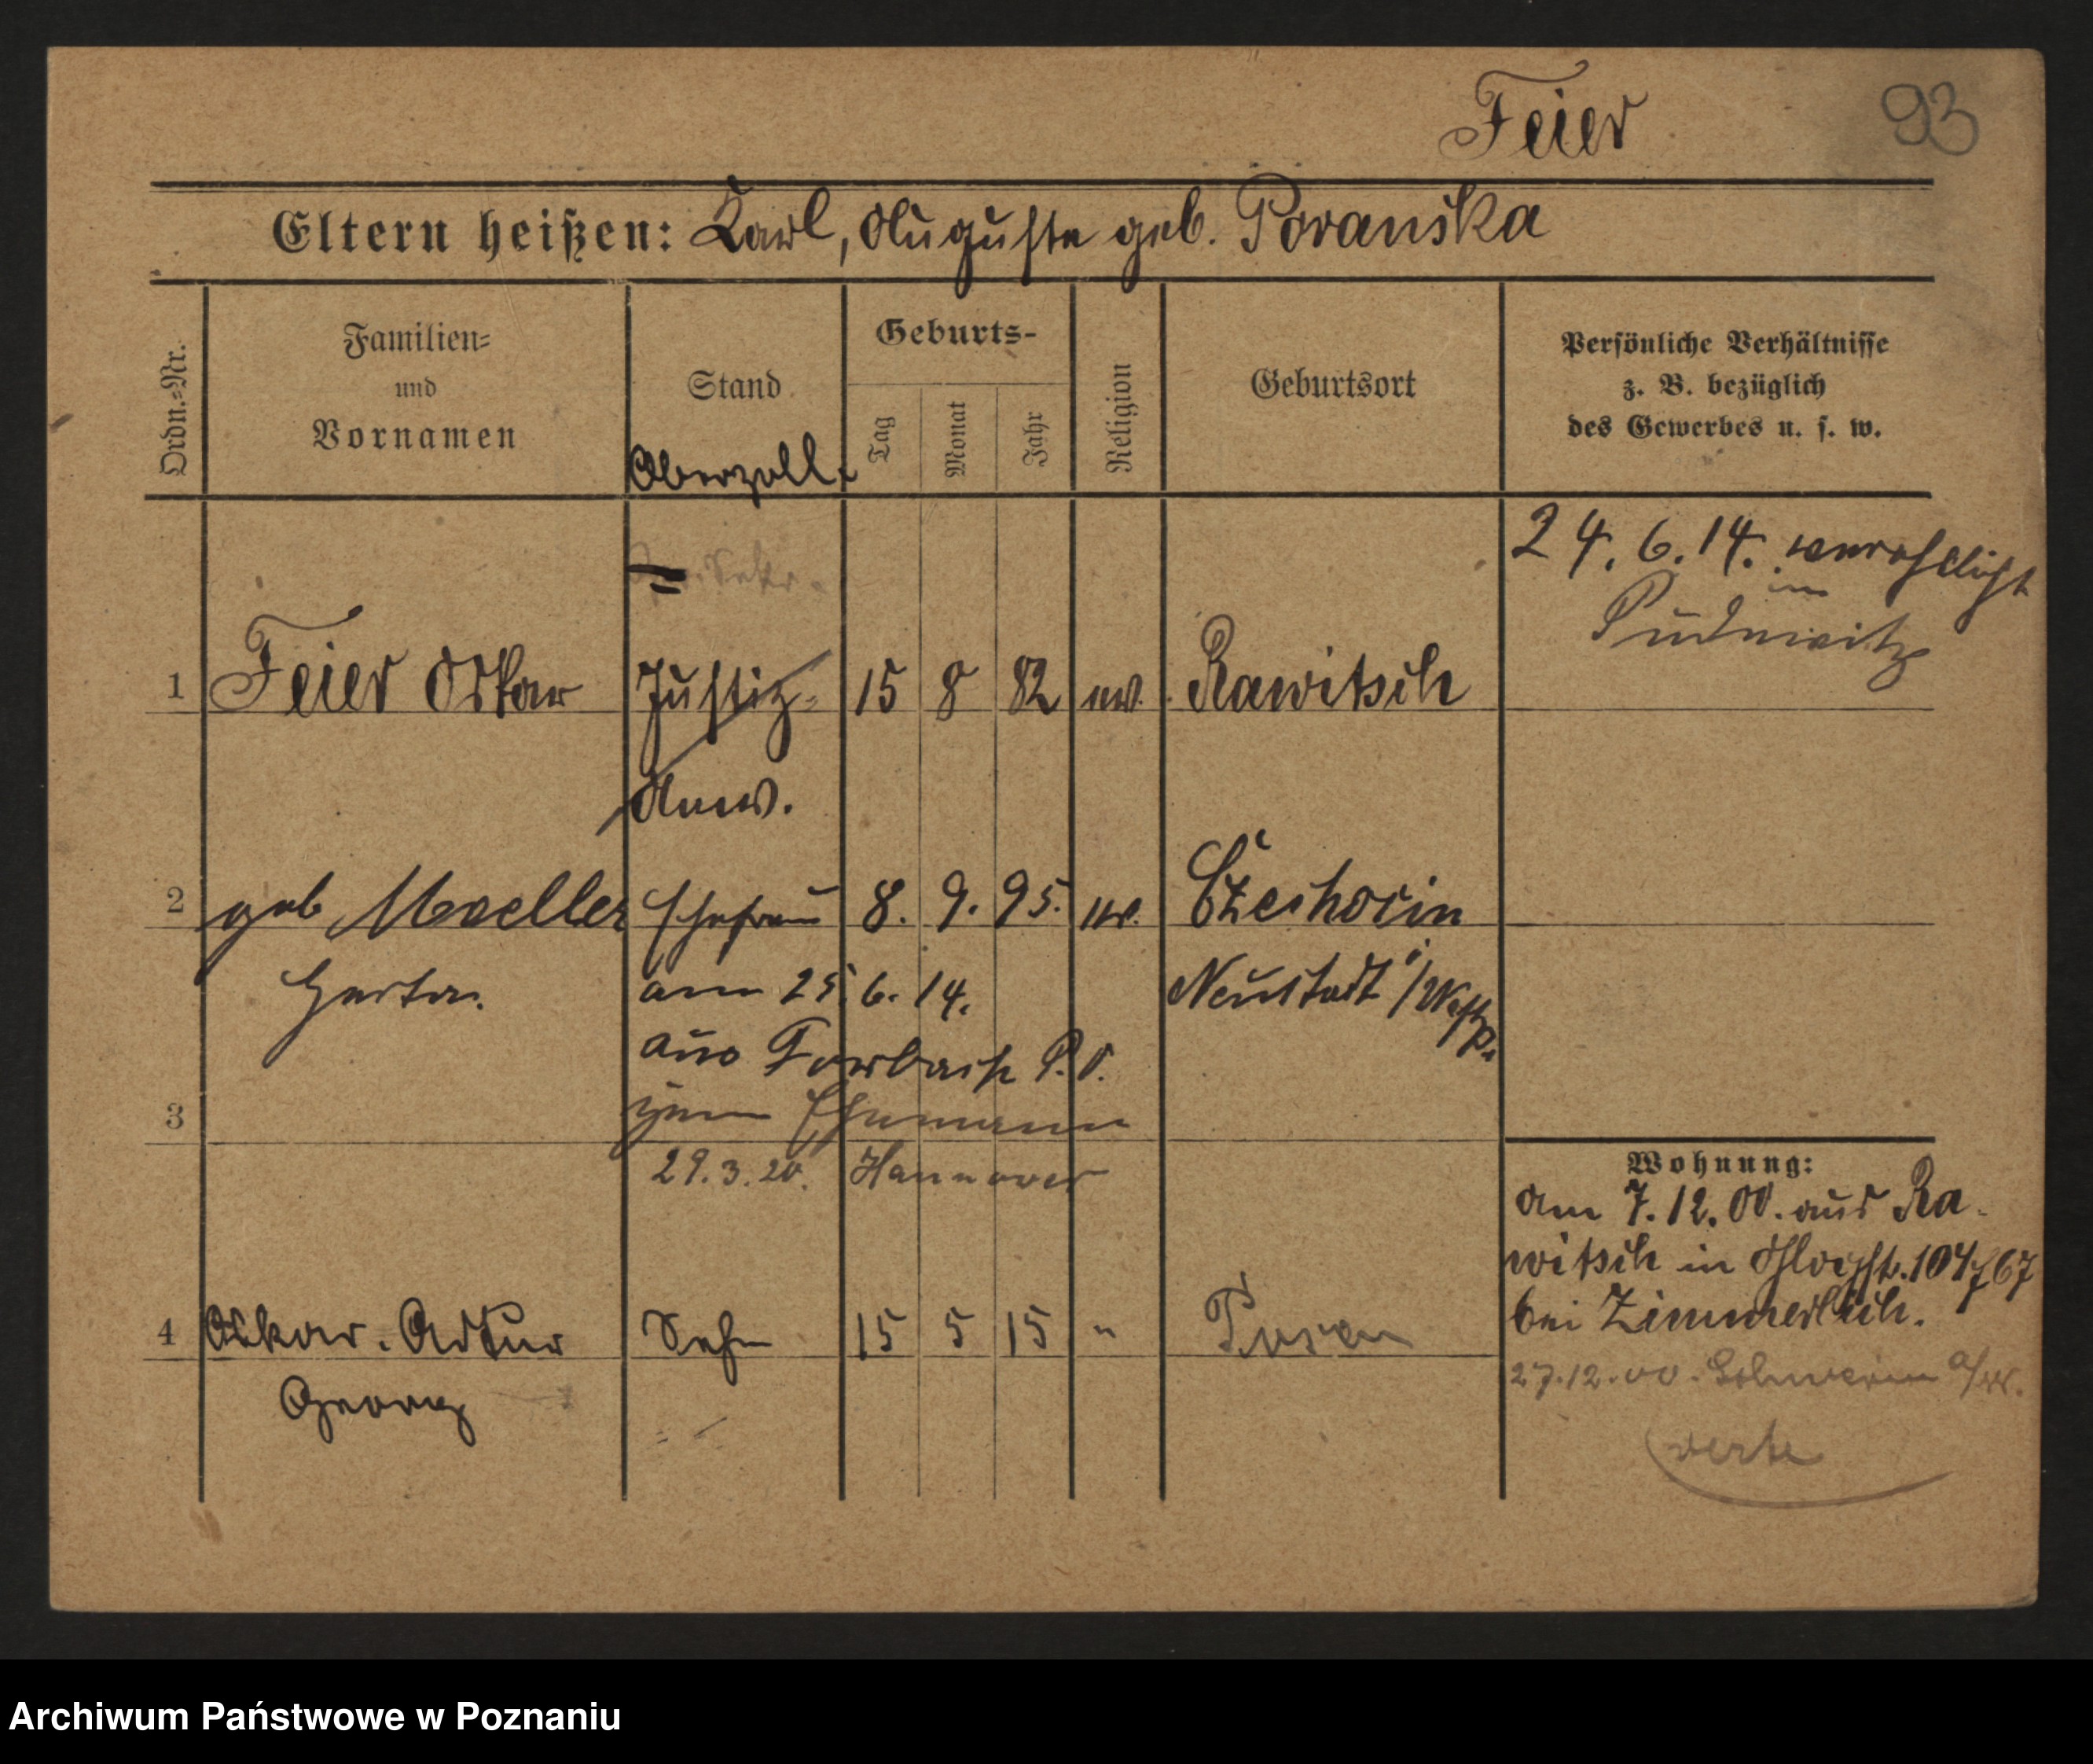 Feier
93
Eltern heißen: Karl, Auguste geb. Poranska
Ordn.=Nr.
Familien=
und
Vornamen
Stand
Geburts-
Tag
Monat
Jahr
Religion
Geburtsort
Persönliche Verhältnisse
z. B. bezüglich
des Gewerbes u. s. w.
Oberzoll-
Sekr.
24. 6. 14. verehelicht
in
Pudewitz
1 Feier Oskar Justiz- 15 8 82 ev. Rawitsch
Anw.
2 geb Moeller Ehefrau 8. 9. 95. ev. Czechocin
Herta. am 25. 6. 14. Neustadt i/Westp.
aus Forbach P. O.
3 zum Ehemann
29. 3. 20. Hannover
Wohnung:
am 7. 12. 00. aus Ra-
witsch in 104/67
bei
4 Oskar. Artur Sohn 15 5 15 " Posen
Georg
27. 12. 00. Schwerin a/W.
verte
Archiwum Państwowe w Poznaniu